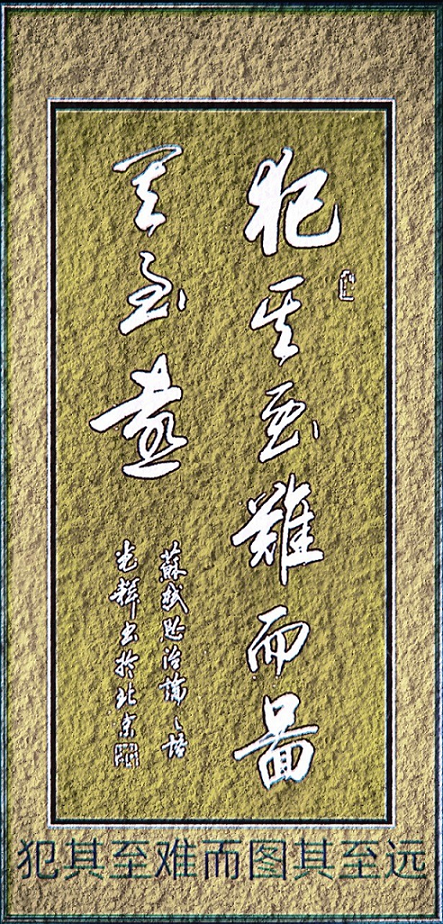 犯其至難而圖
其至遠
蘇軾思治論之語
光輝書於北京
犯其至难而图其至远